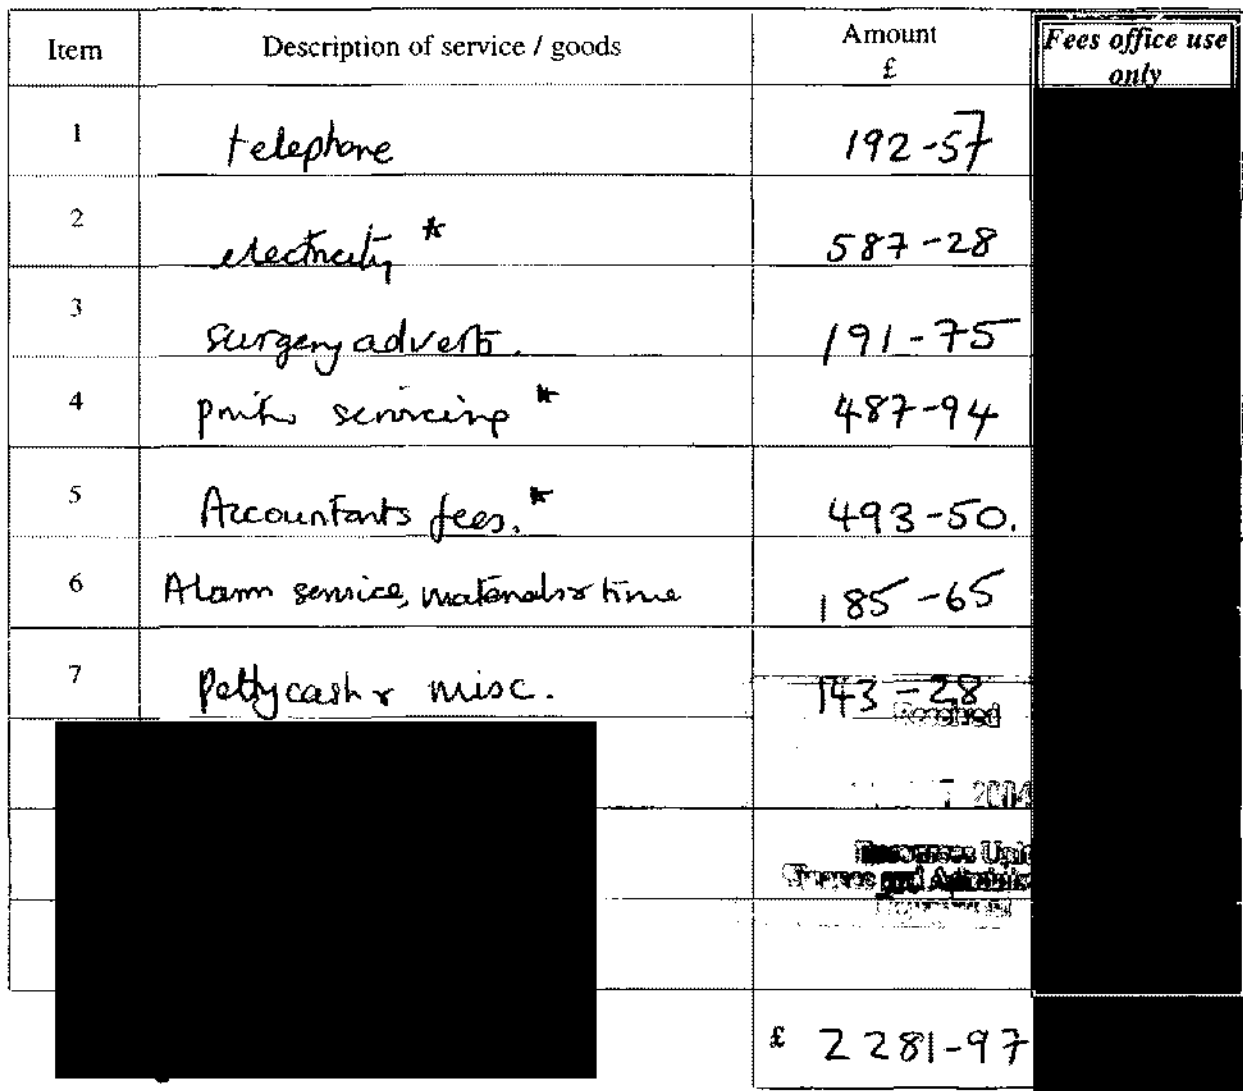 Item Description of service / goods Amount £ Fees office use only
1 telephone 192-57
2 electricity * 587-28
3 surgery adverts. 191-75
4 servicing * 487-94
5 Accountants fees. * 493-50.
6 Alarm service, materials & time 185-65
7 Petty cash & misc. 143-28
Received
2004
Resources
Finance and
£ 2281-97